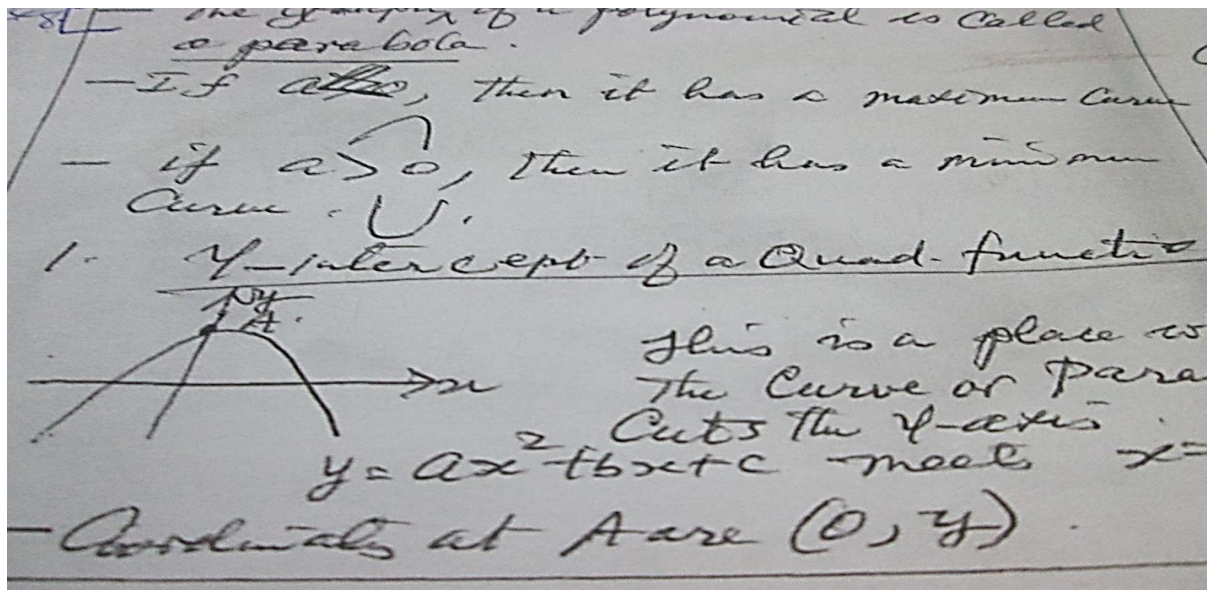 The graph of a polynomial is called
a parabola.
- If a<0, then it has a maximum Curve
- if a>0, then it has a minimum
Curve.
1. Y-intercept of a Quad. functio
y
A.
This is a place w
x
The Curve or Para
Cuts the Y-axis
y = ax²+bx+c meets x=
- Coordinates at A are (0, y).